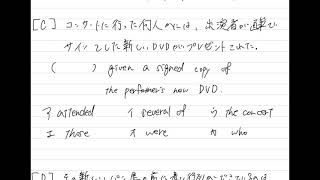 [C] コンサートに行った何人かには、出演者が直筆で
サインをした新しいDVDがプレゼントされた。
( ) given a signed copy of
the performer's new DVD.
ア attended イ several of ウ the concert
エ those オ were カ who
[D] その新しいパン屋の前に長い行列ができているのは